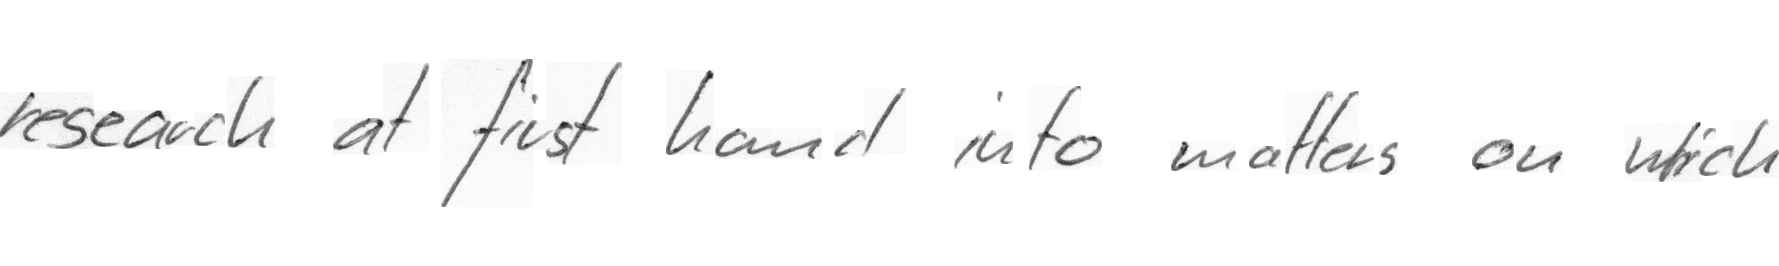 research at first hand into matters on which